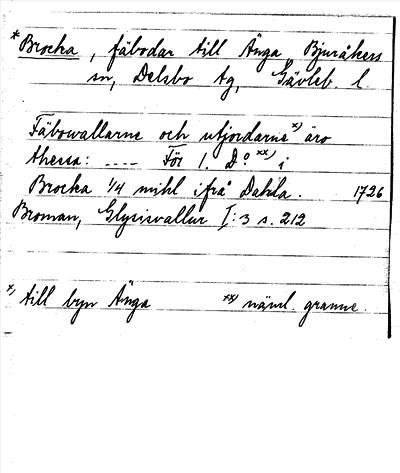 *Brocka, fäbodar till Änga Bjuråkers
sn, Delsbo tg, Gävleb. l.
Fäbowallarne och utjordarne x) äro
thessa: ---- För 1. Do. xx) i
Brocka 1/4 mihl ifrå Dahla. 1726
Broman, Glysisvallur I:3 s. 212
x) till byn Änga xx) näml. granne.